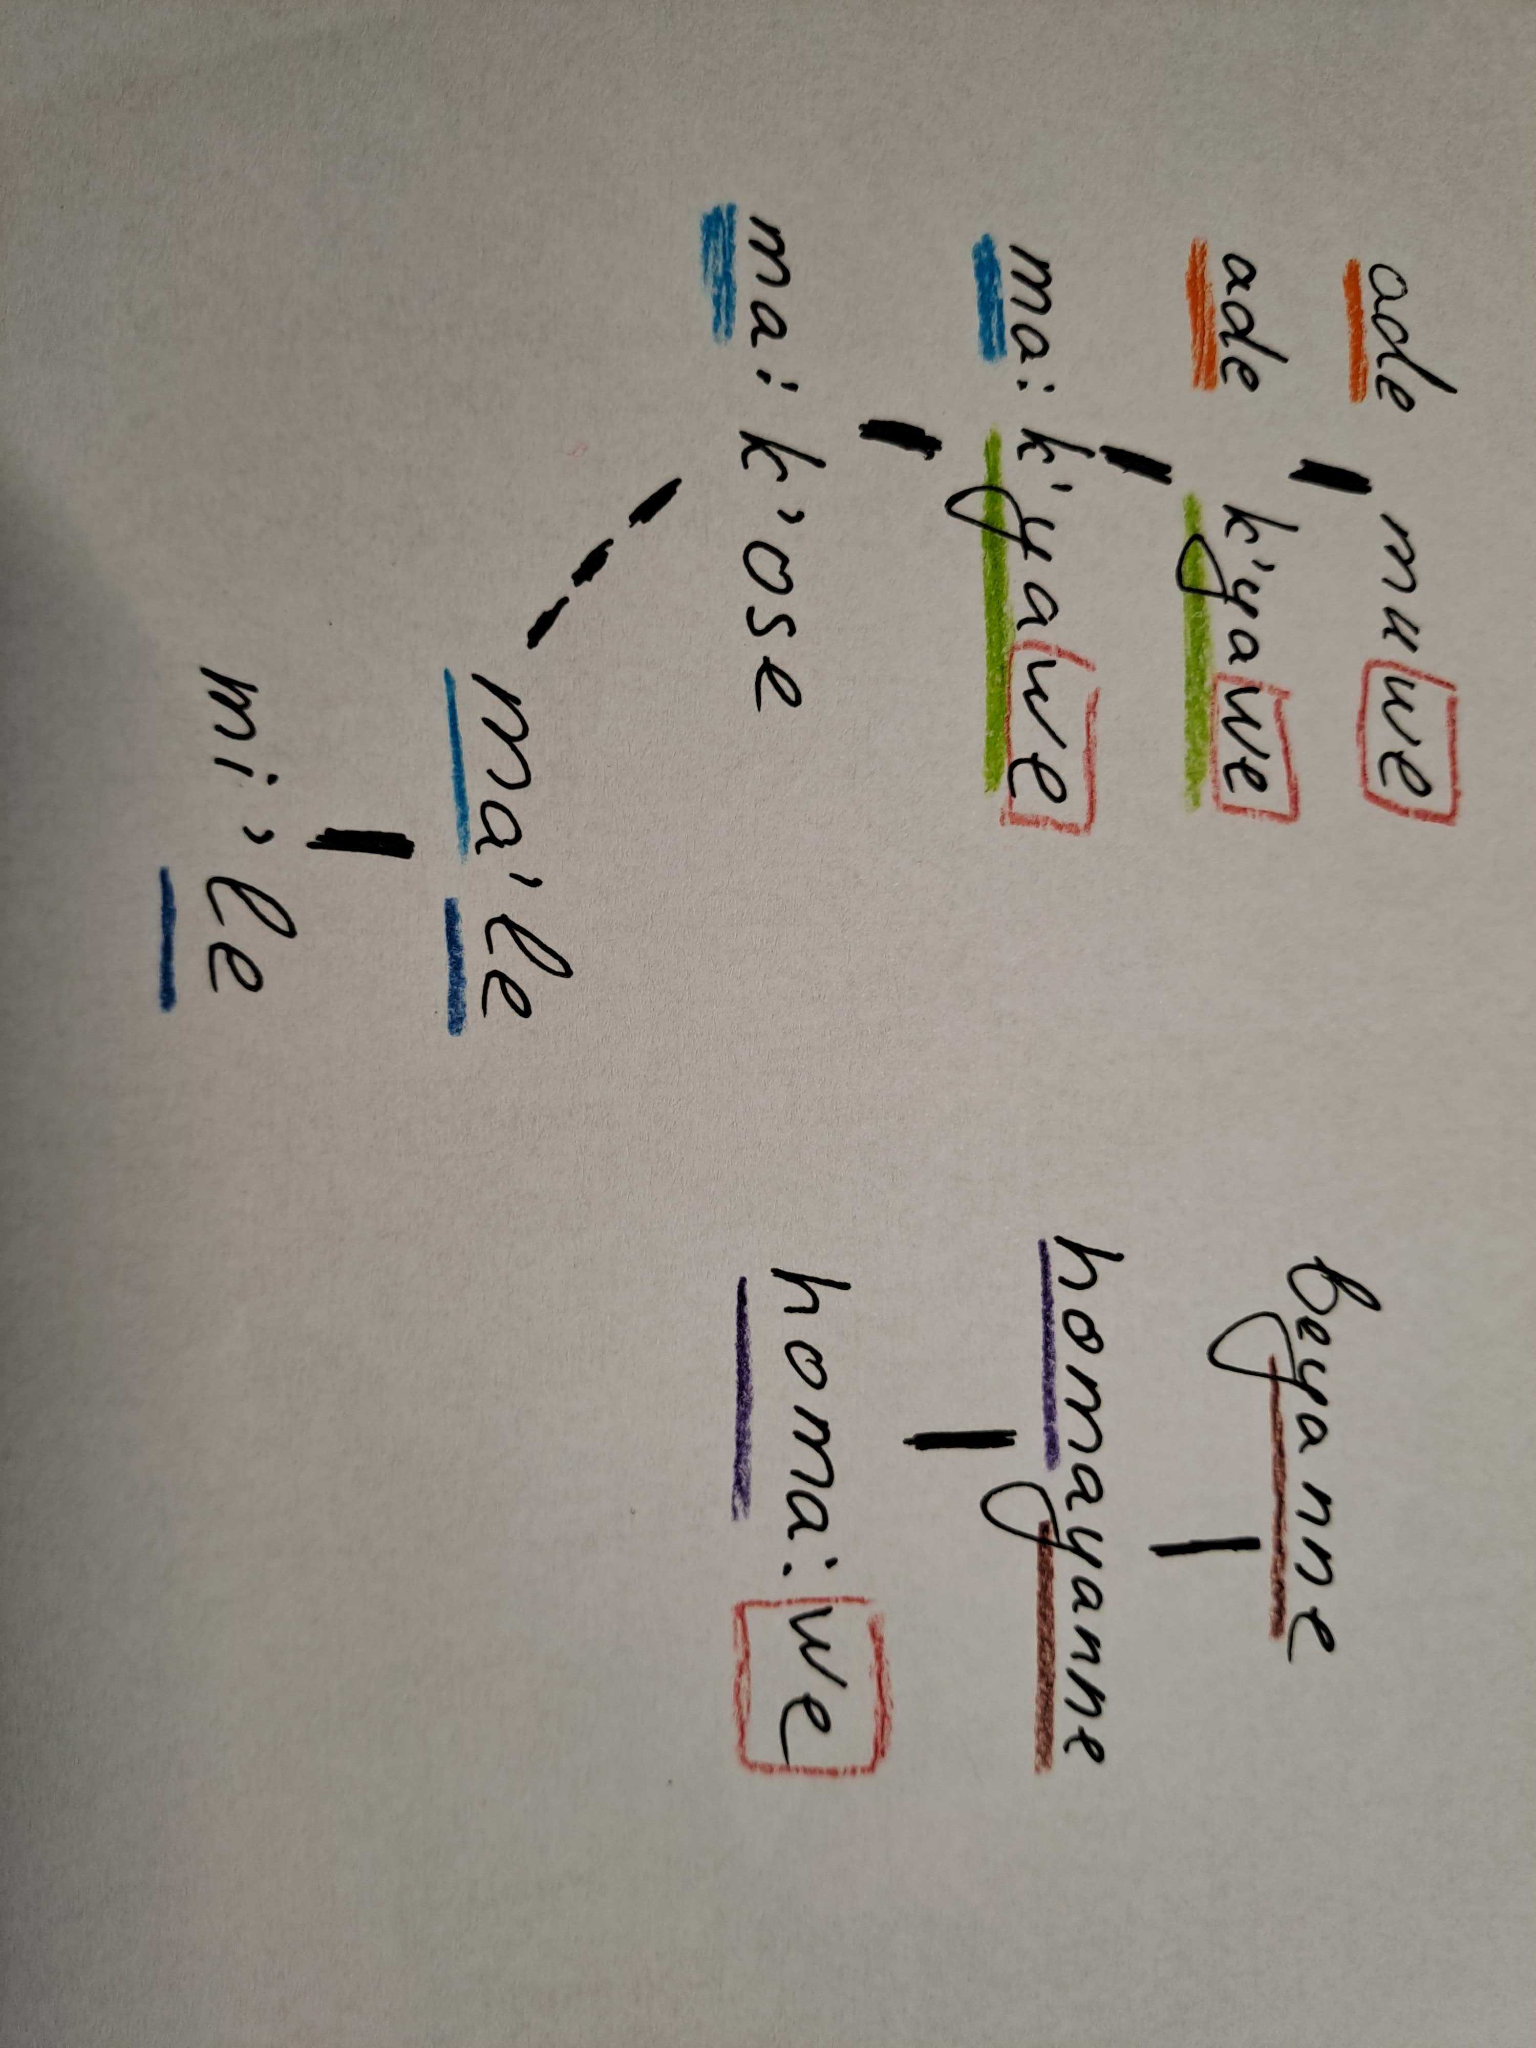 ade muwe
ade k'yawe
ma: k'yawe
ma: k'ose
ma'le
mi'le
beyanne
homayanne
homa:we